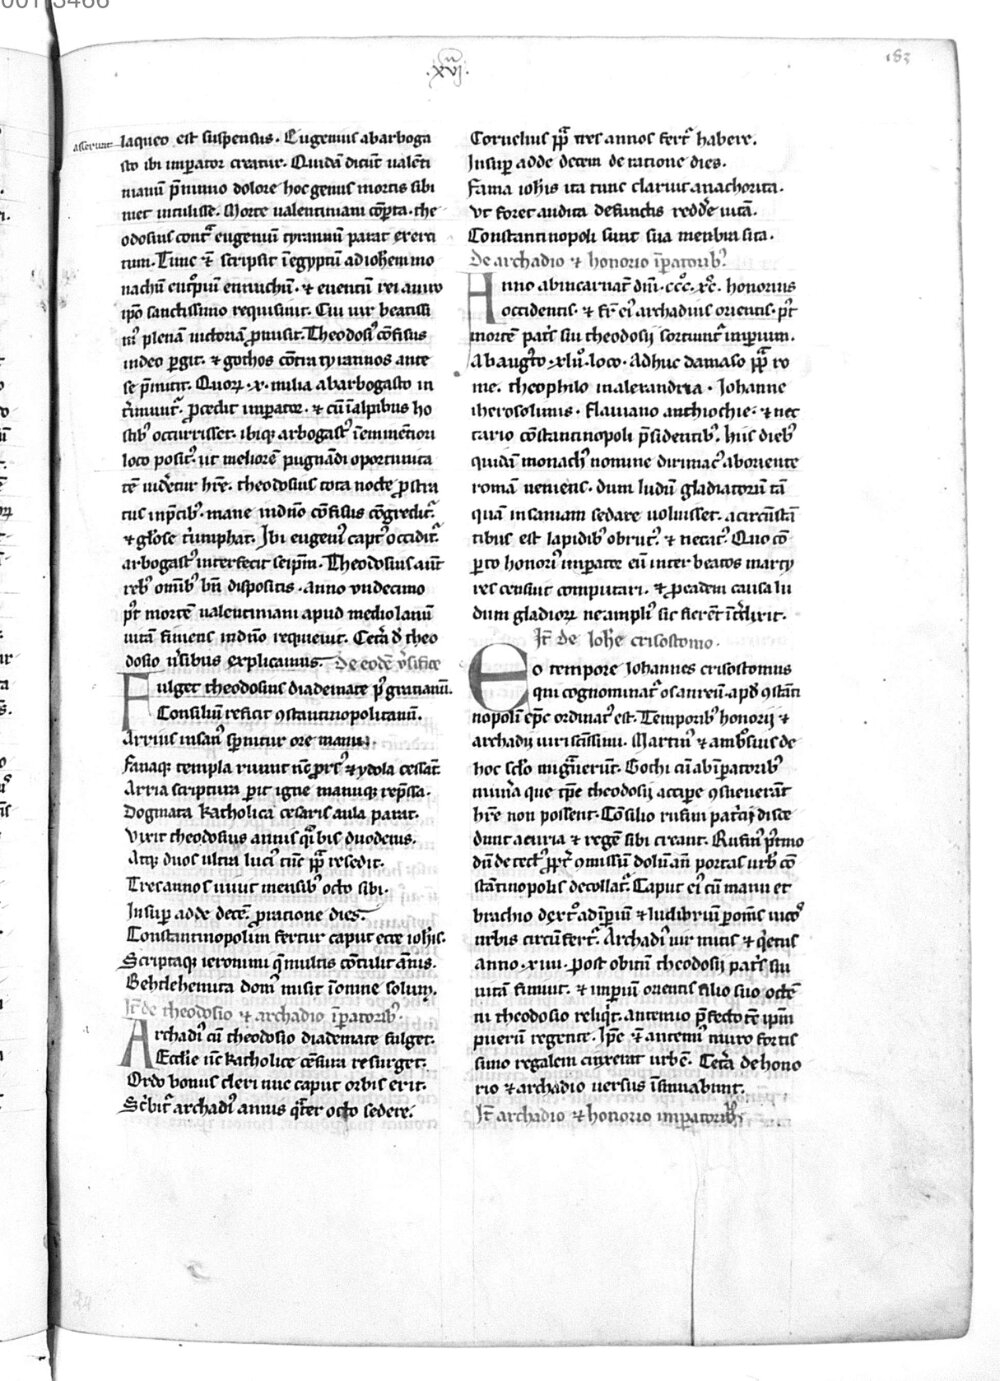 .xvi.
183
asserunt
laqueo est suspensus. Eugenius abarboga
sto ibi imperator creatur. Quidā dicūt ualēti
nianū p̄nimio dolore hoc genus mortis sibi
met intulisse. Morte ualentiniani cōp̄ta. the
odosius cont̄ eugeniū tyrannū parat exerci
tum. Tunc ⁊ scripsit ī egyptū ad iohem mo
nachū ⁊ euentū rei a uiro
ip̄o sanctissimo requisiuit. Cui uir beatissi
mꝰ plenā uictoriā p̄misit. Theodosiꝰ cōfisus
indeo p̄git. ⁊ gothos cōtra tyrannos ante
se p̄mittit. Quoꝝ .x. milia abarbogasto in
t̄imunt̄. p̄cedit imperator. ⁊ cū ī alpibus ho
stibꝰ occurrisset. ibiqꝫ arbogastꝰ ī eminētiori
loco positꝰ. ut meliorē pugnādi oportunita
tē uidetur hr̄e. theodosius tota nocte p̄stra
tus in p̄cibꝰ. mane indn̄o cōfisus cōgredit̄.
⁊ gl̄ose t̄iumphat. Ibi eugeniꝰ captꝰ occidit̄.
arbogastꝰ interfecit seip̄m. Theodosius aūt
rebꝰ om̄ibꝰ bn̄ dispositis. anno undecimo
p̄t mortē ualentiniani apud mediolanū
uitā finiens indn̄o requieuit. Cet̄a d̄ theo
dosio ūsibus explicamus. De eodē ūsifice
Fulget theodosius diademate p̄ gratianū.
Consiliū reficit 9stantinopolitanū.
Arrius insanꝰ sp̄nitur ore manu.
Fanaqꝫ templa ruunt ⁊ ydola cessāt.
Arria scriptura p̄it igne manuqꝫ rep̄ssa.
Dogmata katholica cesaris aula parat.
Vixit theodosius annis q̄ bis duodenis.
Atqꝫ duos ultra luciꝰ tūc p̄p̄ resedit.
Tres annos uiuit mensibꝰ octo sibi.
Insup̄ adde decē. p̄ratione dies.
Constantinopolim fertur caput ecce ioh̄is.
Scriptaqꝫ ieronimi q̄ multis cōtulit annis.
Bethlehemita domꝰ misit ī omne solum.
It̄ de theodosio ⁊ archadio īp̄atoribꝰ.
Archadiꝰ cū theodosio diademate fulget.
Eccl̄ie tūc katholice cēsura resurget.
Ordo bonus cleri tūc caput orbis erit.
Sc̄bit̄ archadiꝰ annis q̄ter octo sedere.
Cornelius p̄p̄ tres annos fert̄ habere.
Insup̄ adde decem de ratione dies.
Fama ioh̄is ita tunc clarius anachorita.
Vt foret audita defunctis redde uitā.
Constantinopoli sunt sua menbra sita.
De archadio ⁊ honorio īp̄atoribꝰ.
Anno abincarnat̄ dn̄i .ccc. xc. honorius
occidentis. ⁊ fr̄ eiꝰ archadius orientis. p̄t
mortē pat̄s sui theodosii sortiunt̄ imperium.
Ab augto .xlii. loco. Adhuc damaso p̄p̄ ro
me. theophilo in alexandria. Iohanne
iherosolimis. flauiano anthiochie. ⁊ nec
tario cōstantinopoli p̄sidentibꝰ. Hiis diebꝰ
quidā monachꝰ nomine dirimacꝰ ab oriente
romā ueniens. dum ludū gladiatorū tā
quā insaniam sedare uoluisset. a circūstā
tibus est lapidibꝰ obrutꝰ. ⁊ necatꝰ. Quo cō
p̄to honoriꝰ imperator eū inter beatos marty
res censuit computari. ⁊ p̄ eadem causa lu
dum gladioꝝ ne ampliꝰ sic fierēt īt̄dixit.
It̄ de Ioh̄e crisostomo.
Eo tempore Iohannes crisostomus
qui cognominat̄ os aureū apd̄ 9stāti
nopolī ep̄c ordinatꝰ est. Temporibꝰ honorij ⁊
archadij uiri sc̄issimi. Martinꝰ ⁊ ambrosius de
hoc sc̄lo migrauerūt. Gothi cū ab īp̄atoribꝰ
mun̄a que tp̄e theodosij accipe 9sueuerāt
hr̄e non possent. Cōsilio rufini pat̄cij disce
dunt a curia ⁊ regē sibi creant. Rufinꝰ p̄timo
portas urbꝰ cō
stātinopolis decollat̄. Caput eiꝰ cū manu et
brachio dext̄o ad īp̄iū ⁊ ludibriū p̄ om̄s uicos
urbis circūfert̄. Archadiꝰ uir mitis ⁊ q̄etus
anno .xiiii. post obitū theodosij pat̄s sui
uitā finiuit. ⁊ imperiū orientis filio suo octē
ni theodosio reliq̄t. antemio p̄fecto tē ip̄m
puerū regente. Ip̄e ⁊ antemiꝰ muro fortis
simo regalem cinxerūt urbē. Cet̄a de hono
rio ⁊ archadio uersus īsinuabunt.
It̄ archadio ⁊ honorio imperatoribꝰ